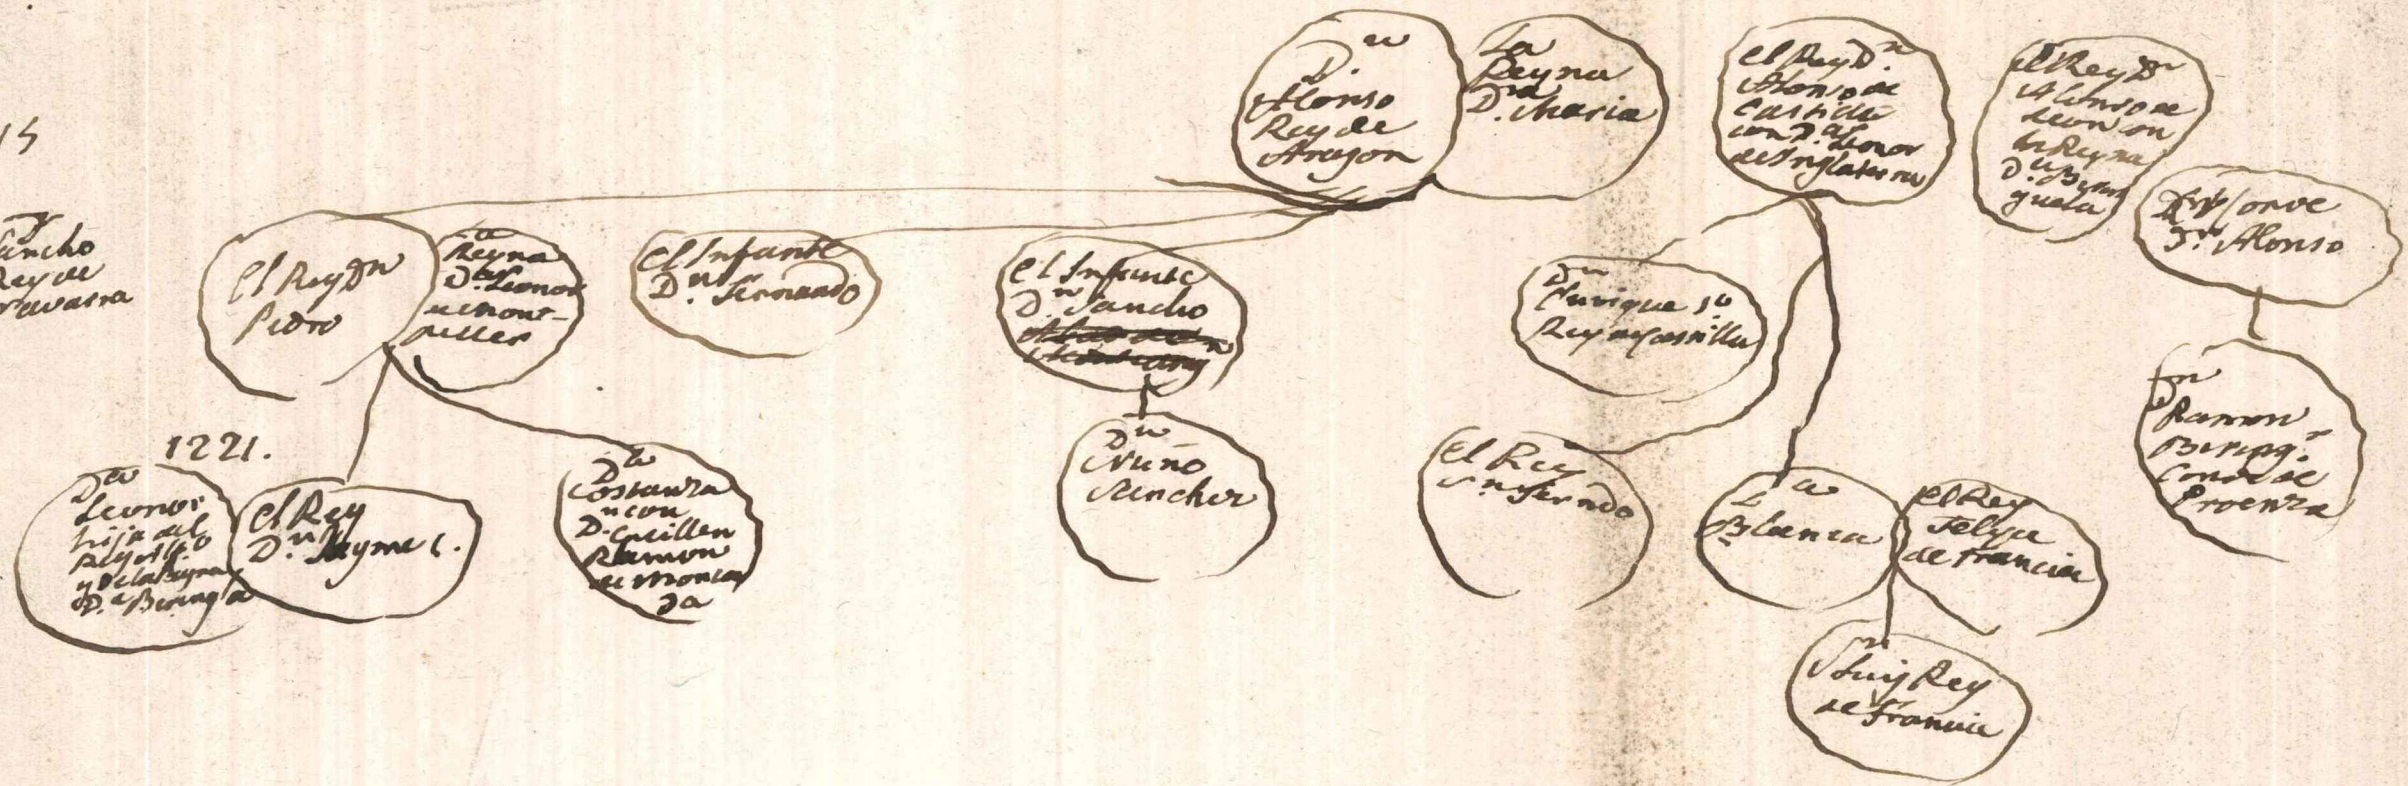 Dn
Alonso
Rey de
Aragon
La
Reyna
Da. Maria
el Rey Dn.
Alonso de
Castilla
con Da. Leonor
de Inglaterra
el Rey Dn
Alonso de
Leon con
la Reyna
Da. Beren
guela
Conde
Dn. Alonso
15
ancho
Rey de
avarra
el Rey Dn
Pedro
Reyna
Da. Leonor
de Mont-
peller
el Infante
Dn. Fernando
el Infante
Dn. Sancho
Dn
Enrique 1o.
Rey de Castilla
Dn
Ramon
Bereng.r
Conde de
Proenza
1221.
Da
Leonor
hija del
Rey Alfo
y de la Reyna
D.a Bereng a
el Rey
Dn. Jayme 1.
Da
Costanza
con
D. Guillen
Ramon
de Monca
da
Dn
Nuño
Sanchez
el Rey
Sn Fernādo
Da
Blanca
el Rey
Felipe
de Francia
S Luis Rey
de Francia